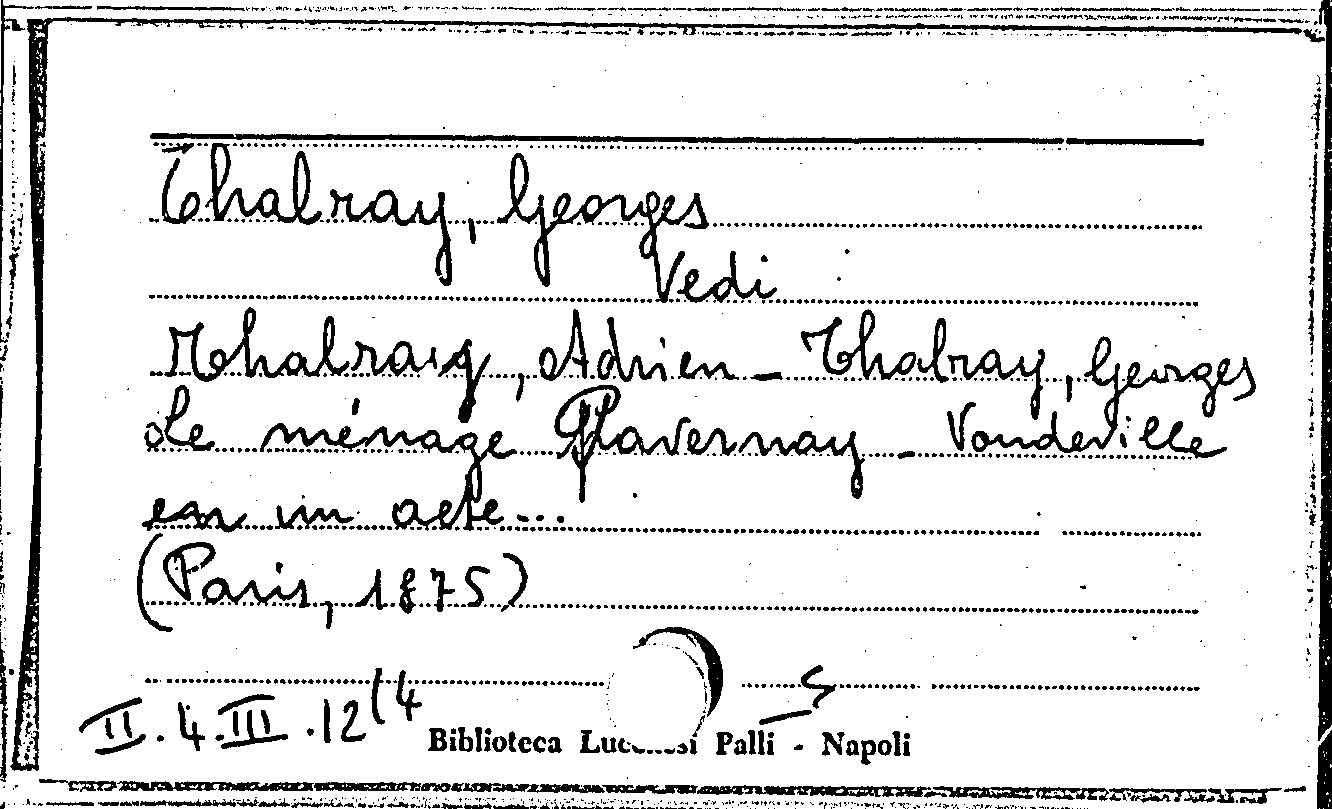 Thalray, Georges
Vedi
Thalray, Adrien - Thalray, Georges
Le ménage Plavernay - Vaudeville
en un acte...
(Paris, 1875)
II.4.III.12(4
Biblioteca Lucchesi Palli - Napoli